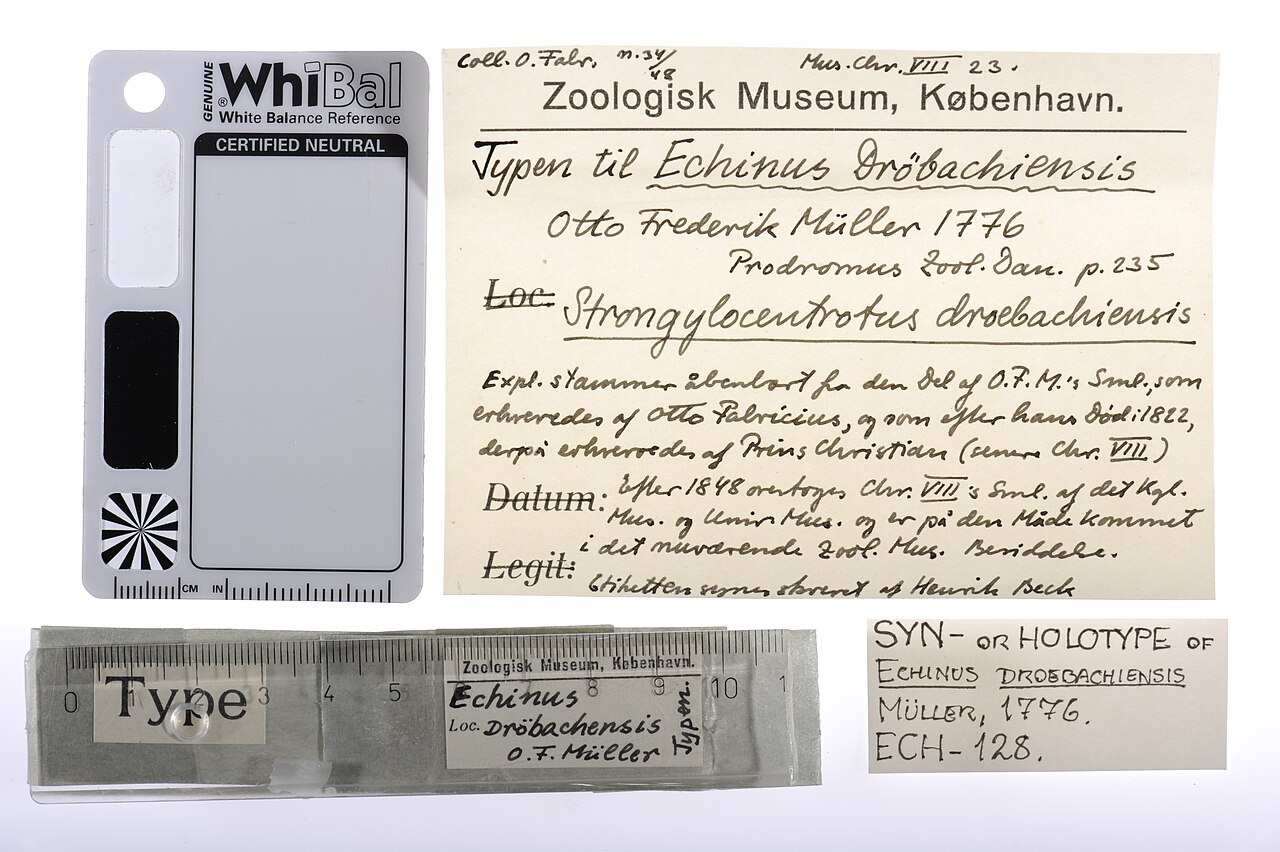 GENUINE
® WhiBal
White Balance Reference
CERTIFIED NEUTRAL
CM IN
Coll. O. Fabr. n. 34/48 Mus. Chr. VIII 23.
Zoologisk Museum, København.
Typen til Echinus Dröbachiensis
Otto Frederik Müller 1776
Prodromus Zool. Dan. p. 235
Loc.
Strongylocentrotus droebachiensis
Expl. stammer åbenbart fra den Del af O.F.M.'s Sml., som
erhvervedes af Otto Fabricius, og som efter hans Død i 1822,
derpå erhvervedes af Prins Christian (senere Chr. VIII)
Datum: Efter 1848 overtoges Chr. VIII's Sml. af det Kgl.
Mus. og Univ. Mus. og er på den Måde kommet
i det nuværende Zool. Mus. Besiddelse.
Legit:
Etiketten synes skrevet af Henrik Beck
0 1 2 3 4 5 8 9 10 1
Type
Zoologisk Museum, København.
Echinus
Loc. Dröbachensis
O.F. Müller
Typen.
SYN- OR HOLOTYPE OF
ECHINUS DROEBACHIENSIS
MÜLLER, 1776.
ECH-128.